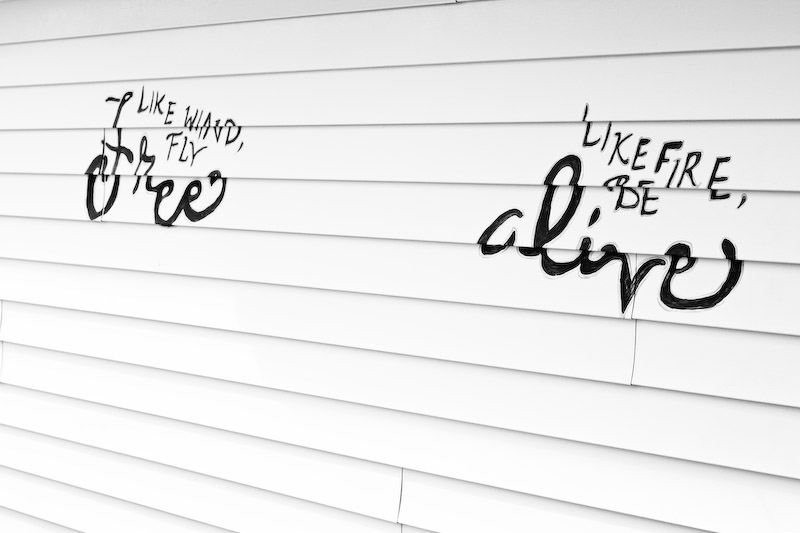 LIKE WIND,
FLY
free
LIKE FIRE,
BE
alive